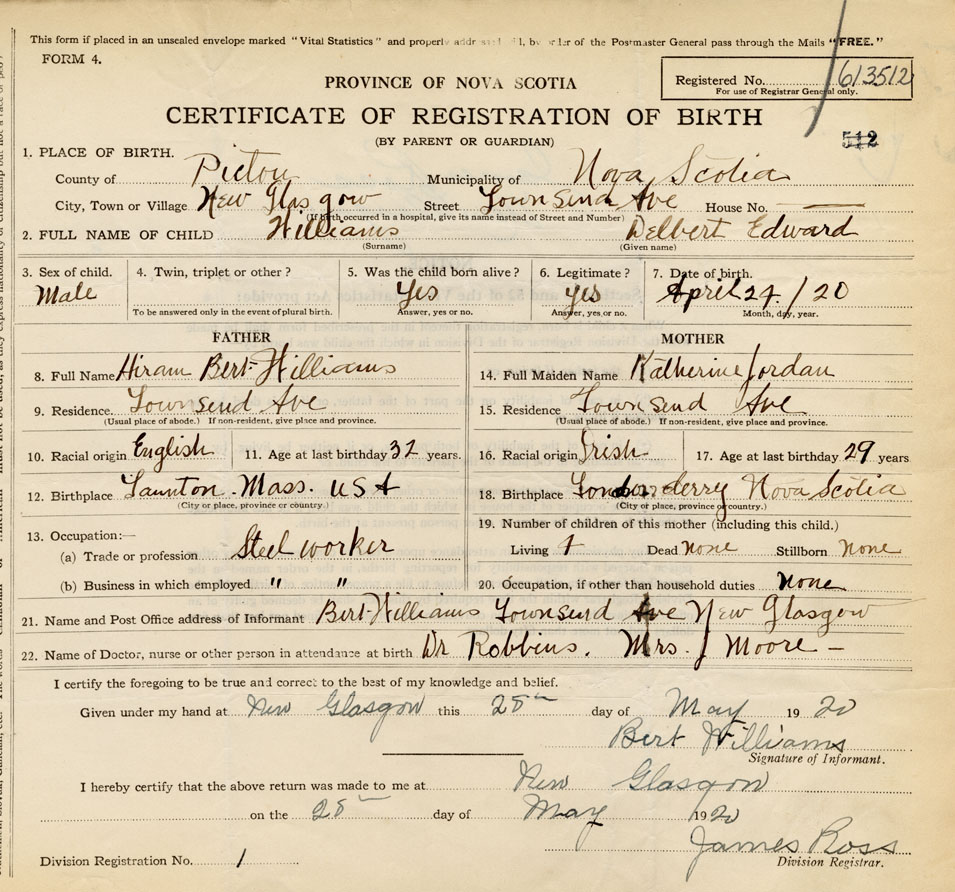 This form if placed in an unsealed envelope marked "Vital Statistics" and properly addressed, by order of the Postmaster General pass through the Mails "FREE."
FORM 4.
PROVINCE OF NOVA SCOTIA
Registered No. 613512
For use of Registrar General only.
CERTIFICATE OF REGISTRATION OF BIRTH
(BY PARENT OR GUARDIAN)
512
1. PLACE OF BIRTH.
County of Pictou Municipality of Nova Scotia
City, Town or Village New Glasgow Street Townsend Ave House No. —
(If birth occurred in a hospital, give its name instead of Street and Number)
2. FULL NAME OF CHILD Williams Delbert Edward
(Surname) (Given name)
3. Sex of child. 4. Twin, triplet or other? 5. Was the child born alive? 6. Legitimate? 7. Date of birth.
Male Yes Yes April 24 / 20
To be answered only in the event of plural birth. Answer, yes or no. Answer, yes or no. Month, day, year.
FATHER MOTHER
8. Full Name Hiram Bert Williams 14. Full Maiden Name Katherine Jordan
9. Residence. Townsend Ave 15. Residence Townsend Ave
(Usual place of abode.) If non-resident, give place and province. (Usual place of abode.) If non-resident, give place and province.
10. Racial origin English 11. Age at last birthday 32 years. 16. Racial origin Irish 17. Age at last birthday 29 years
12. Birthplace Taunton. Mass. USA 18. Birthplace Londonderry Nova Scotia
(City or place, province or country.) (City or place, province or country.)
13. Occupation:— 19. Number of children of this mother (including this child.)
(a) Trade or profession Steel worker Living Dead none Stillborn none
(b) Business in which employed " " 20. Occupation, if other than household duties none
21. Name and Post Office address of Informant Bert Williams Townsend Ave New Glasgow
22. Name of Doctor, nurse or other person in attendance at birth Dr Robbins. Mrs. J Moore —
I certify the foregoing to be true and correct to the best of my knowledge and belief.
Given under my hand at New Glasgow this day of May 1920
Bert Williams
Signature of Informant.
I hereby certify that the above return was made to me at New Glasgow
on the day of May 1920
James Ross
Division Registration No. 1 Division Registrar.